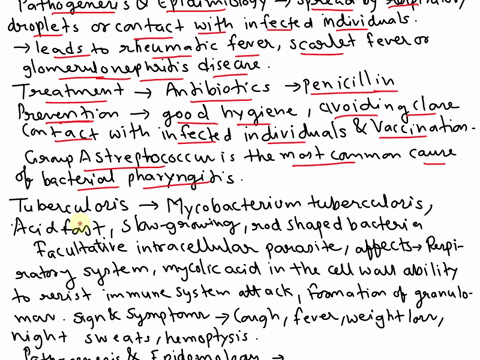 Pathogenesis & Epidemiology → spread by respiratory
droplets or contact with infected individuals.
→ leads to rheumatic fever, scarlet fever or
glomerulonephritis disease.
Treatment → Antibiotics → Penicillin
Prevention → good hygiene, avoiding close
contact with infected individuals & Vaccination.
Group A streptococcus is the most common cause
of bacterial pharyngitis.
Tuberculosis → Mycobacterium tuberculosis,
Acid fast, slow-growing, rod shaped bacteria
Facultative intracellular parasite, affects → Respi-
ratory system, mycolic acid in the cell wall ability
to resist immune system attack, formation of granulo-
mas. Sign & Symptoms → Cough, fever, weight loss,
night sweats, hemoptysis.
Pathogenesis & Epidemiology →